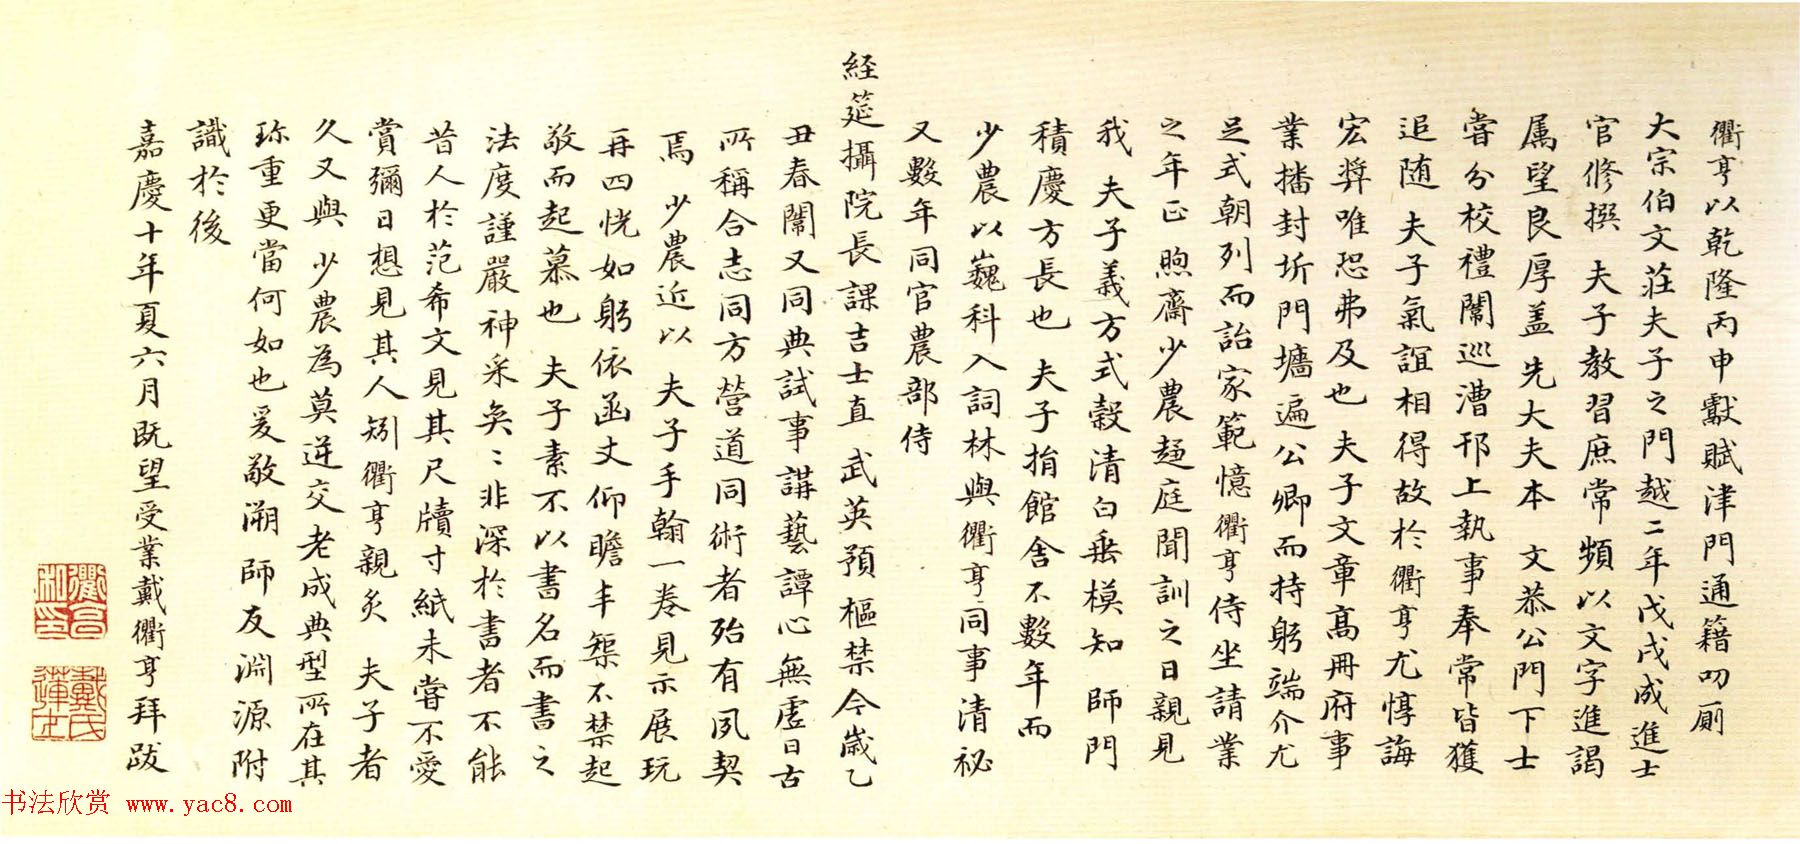 衢亨以乾隆丙申獻賦津門通籍叨厠
大宗伯文莊夫子之門越二年戊戌成進士
官修撰 夫子教習庶常頻以文字進謁
屬望良厚盖先大夫本 文恭公門下士
嘗分校禮闈巡漕邗上執事奉常皆獲
追随 夫子氣誼相得故於衢亨尤惇誨
宏奬唯恐弗及也 夫子文章高冊府事
業播封圻門墻遍公卿而持躬端介尤
足式朝列而詒家範憶衢亨侍坐請業
之年正 煦齋少農趨庭聞訓之日親見
我 夫子義方式穀清白垂模知 師門
積慶方長也 夫子捐館舍不數年而
少農以巍科入詞林與衢亨同事清祕
又數年同官農部侍
経筵攝院長課吉士直 武英預樞禁今歲乙
丑春闈又同典試事講藝譚心無虛日古
所稱合志同方營道同術者殆有夙契
焉 少農近以 夫子手翰一卷見示展玩
再四恍如躬依函丈仰瞻丰榘不禁起
敬而起慕也 夫子素不以書名而書之
法度謹嚴神采奐〻非深於書者不能
昔人於范希文見其尺牘寸紙未嘗不愛
賞彌日想見其人矧衢亨親炙 夫子者
久又與 少農為莫逆交老成典型所在其
珎重更當何如也爰敬溯 師友淵源附
識於後
嘉慶十年夏六月既望受業戴衢亨拜跋
衢亨私印
戴氏蓮士
书法欣赏 www.yac8.com